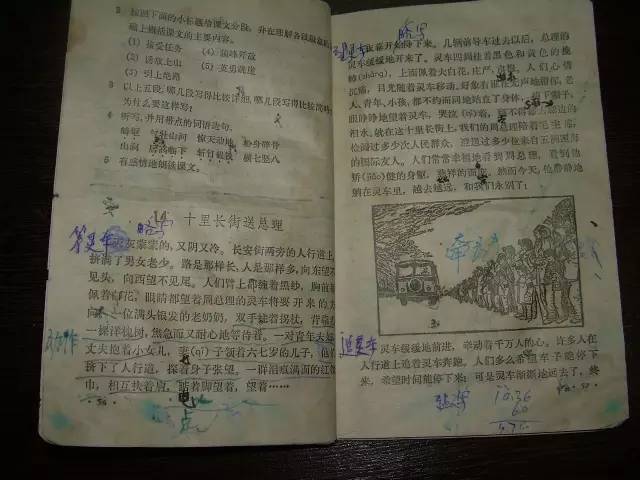 2 按照下面的小标题给课文分段，并在理解各段
础上概括课文的主要内容。
(1) 接受任务 (4) 顶峰歼敌
(2) 诱敌上山 (5) 英勇跳崖
(3) 引上绝路
3 以上五段，哪几段写得比较详细，哪几段写得比较简
为什么要这样写？
4 听写，并用带点的词语造句。
崎岖 气壮山河 惊天动地 粉身碎骨
山涧 居高临下 斩钉截铁 横七竖八
5 有感情地朗读课文。
14 十里长街送总理
等灵车
灰蒙蒙的，又阴又冷。长安街两旁的人行道上
挤满了男女老少。路是那样长，人是那样多，向东望不
见头，向西望不见尾。人们臂上都缠着黑纱，胸前都
佩着白花，眼睛都望着周总理的灵车将要开来的方
向。一位满头银发的老奶奶，双手拄着拐杖，背靠着
一棵洋槐树，焦急而又耐心地等待着。一对青年夫妇，
丈夫抱着小女儿，妻(qī)子领着六七岁的儿子，他们
挤下了人行道，探着身子张望。一群泪痕满面的红领
巾，相互扶着肩，踮着脚望着，望着……
点
夜幕开始降下来。几辆前导车过去以后，总理的
灵车缓缓地开来了。灵车四周挂着黑色和黄色的挽
幛(zhàng)，上面佩着大白花，庄严，肃穆。人们心情
沉痛，目光随着灵车移动。好象有谁在无声地指挥，老
人、青年、小孩，都不约而同地站直了身体，摘下帽子，
眼睁睁地望着灵车，哭泣(qì)着，顾不得擦去腮边的
泪水。就在这十里长街上，我们的周总理陪着毛主席，
检阅过多少次人民群众，迎送过多少位来自五洲四海
的国际友人。人们常常幸福地看到周总理，看到他矫
健(jiǎo)的身躯，慈祥的面庞。然而今天，他静静地
躺在灵车里，越去越远，和我们永别了！
追灵车
灵车缓缓地前进，牵动着千万人的心。许多人在
人行道上追着灵车奔跑。人们多么希望车子能停下
来，希望时间能停下来！可是灵车渐渐地远去了，终
10.36